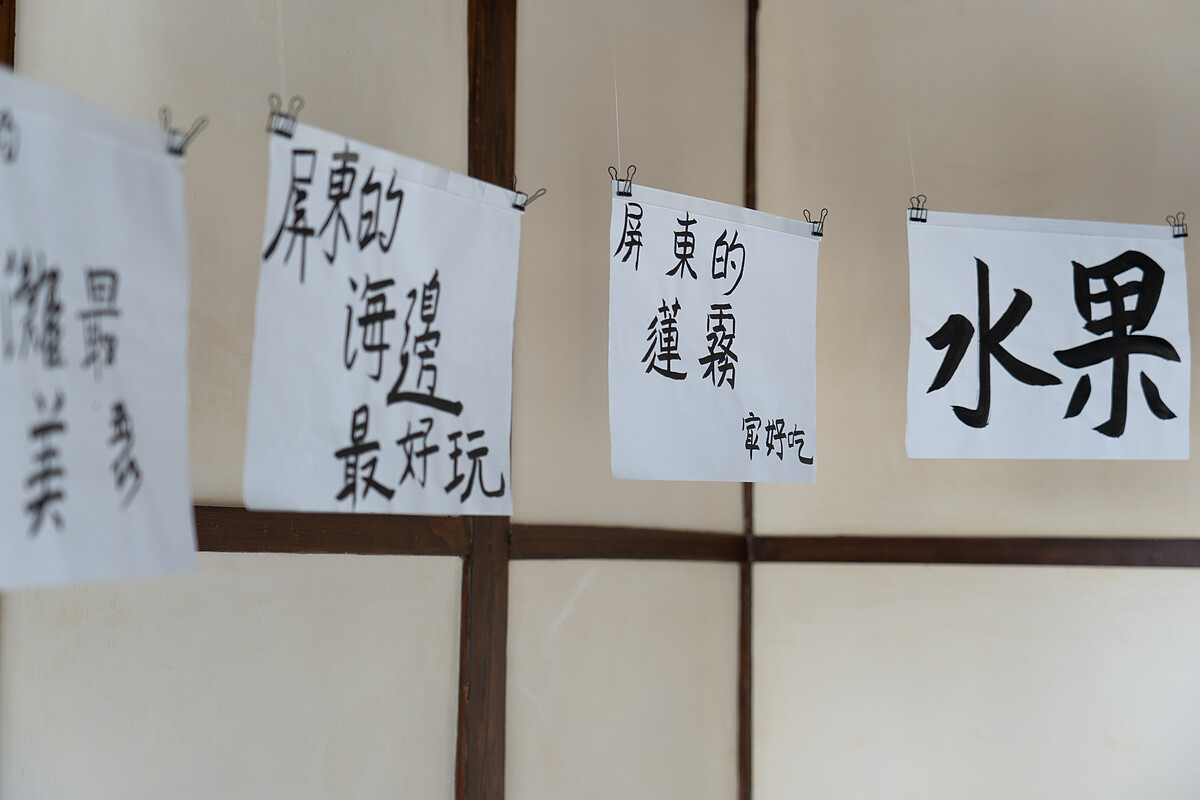 最
美
屏東的
海邊
最好玩
屏東的
蓮霧
㝡好吃
水果